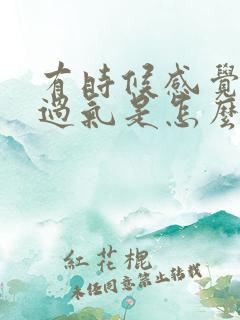 有時候感覺
過氣是怎麼
紅花棍
未经同意禁止转载